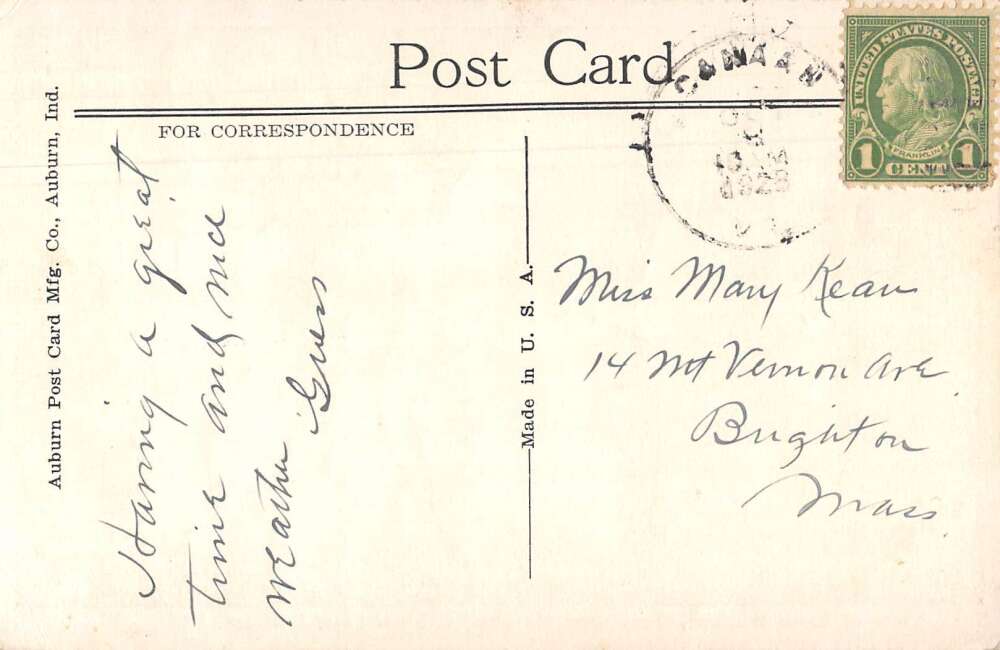 Post Card
FOR CORRESPONDENCE
Auburn Post Card Mfg. Co., Auburn, Ind.
Having a great
time and nice
weather Guess
Made in U. S. A.
CANAAN
1928
UNITED STATES POSTAGE
FRANKLIN
1 CENT 1
Miss Mary Kean
14 Mt Vernon Ave
Brighton
Mass